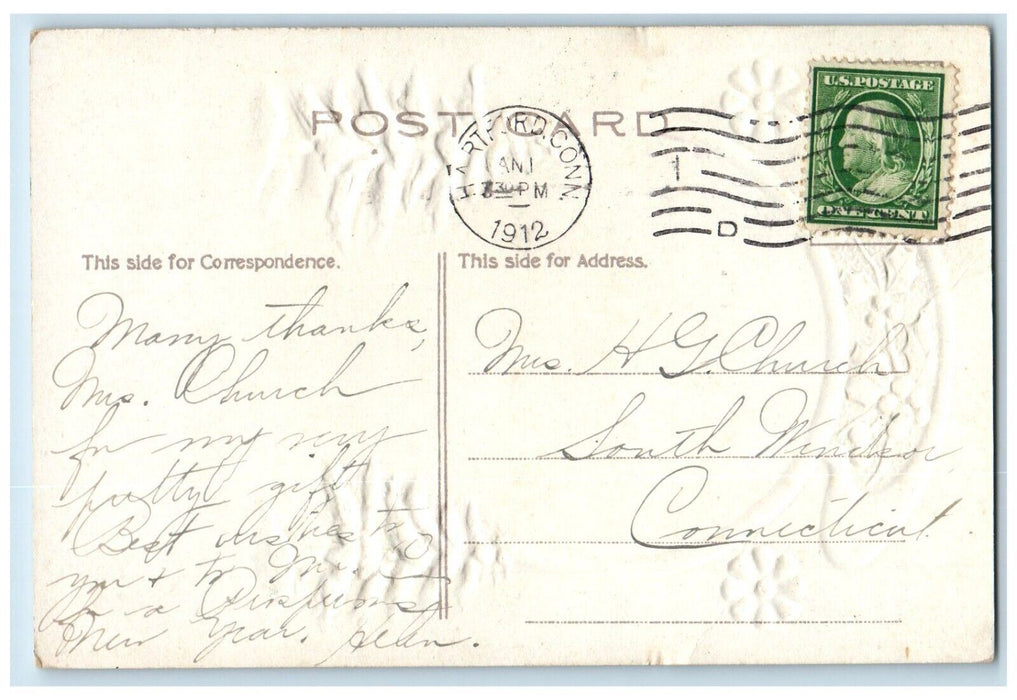 POST CARD
HARTFORD, CONN.
JAN 1
30 PM
1912
1
D
U.S. POSTAGE
ONE CENT
This side for Correspondence.
This side for Address.
Many thanks,
Mrs. Church
for my very
pretty gift
Best wishes to
you & to Mr.
for a Prosperous
New Year. Helen.
Mrs. H G. Church
South Windsor
Connecticut.